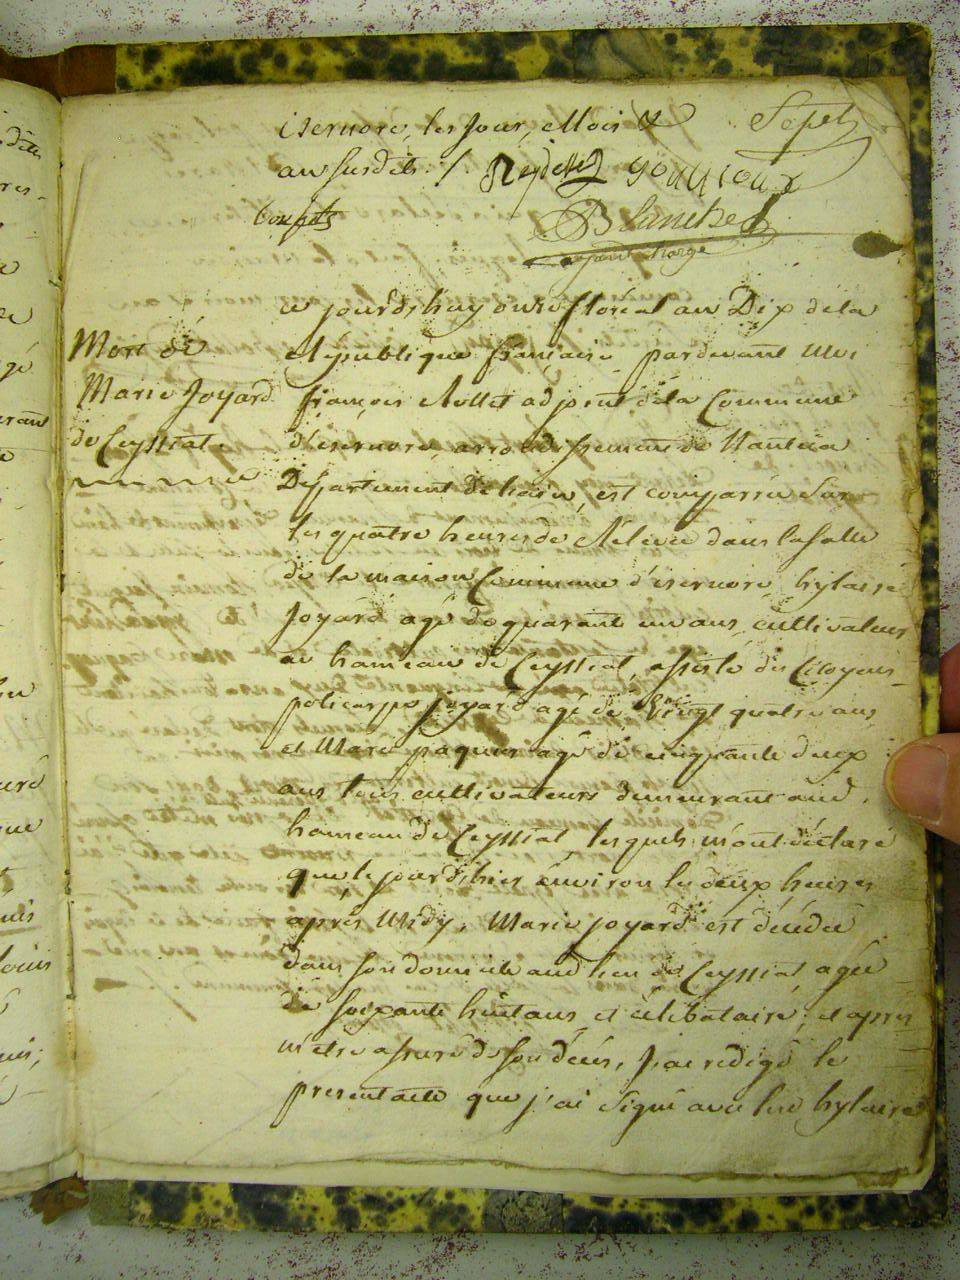 Sept
isernore, les jour, Mois &
an susdits ./. Reydellet gouilloux
Coupets
Blanchet
ayant charge
ce jourd'huy onze floréal an Dix de la
Mort de
Marie Joyard
de Ceyssiat
République francaise pardevant Moi
françois Rollet adjoint de la Commune
d'isernore, arrondissement de Nantua
Département de l'ain, est comparru sur
les quatre heures de Relevée dans la salle
de la maison Commune d'isernore, hylaire
Joyard agé de quarante un ans, cultivateur
au hameau de Ceyssiat, assisté des Citoyens
policarpe Joyard agé de vingt quatre ans
et Marc paquier agé de cinquante deux
ans tous cultivateurs demeurant aud.
hameau de Ceyssiat lesquels m'ont déclaré
que le jourd'hier environ les deux heures
après Midy, Marie joyard est décédée
dans son domicile aud lieu de Ceyssiat, agée
de soixante huit ans et célibataire, et après
m'etre assuré de son décès, J'ai redigé le
present acte que j'ai signé avec led hylaire